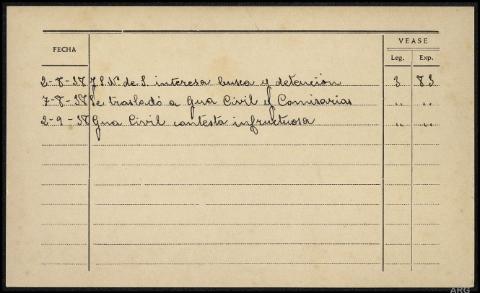 VEASE
FECHA Leg. Exp.
2-8-38 J.S. Nº de S. interesa busca y detención 3 83
7-8-38 Se trasladó a Gua Civil y Comisarias " "
2-9-38 Gua Civil contesta infructuosa " "
ARG